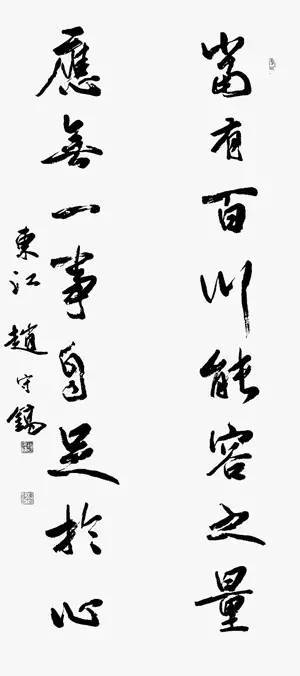 當有百川能容之量
應無一事自足於心
東江 趙守鎬